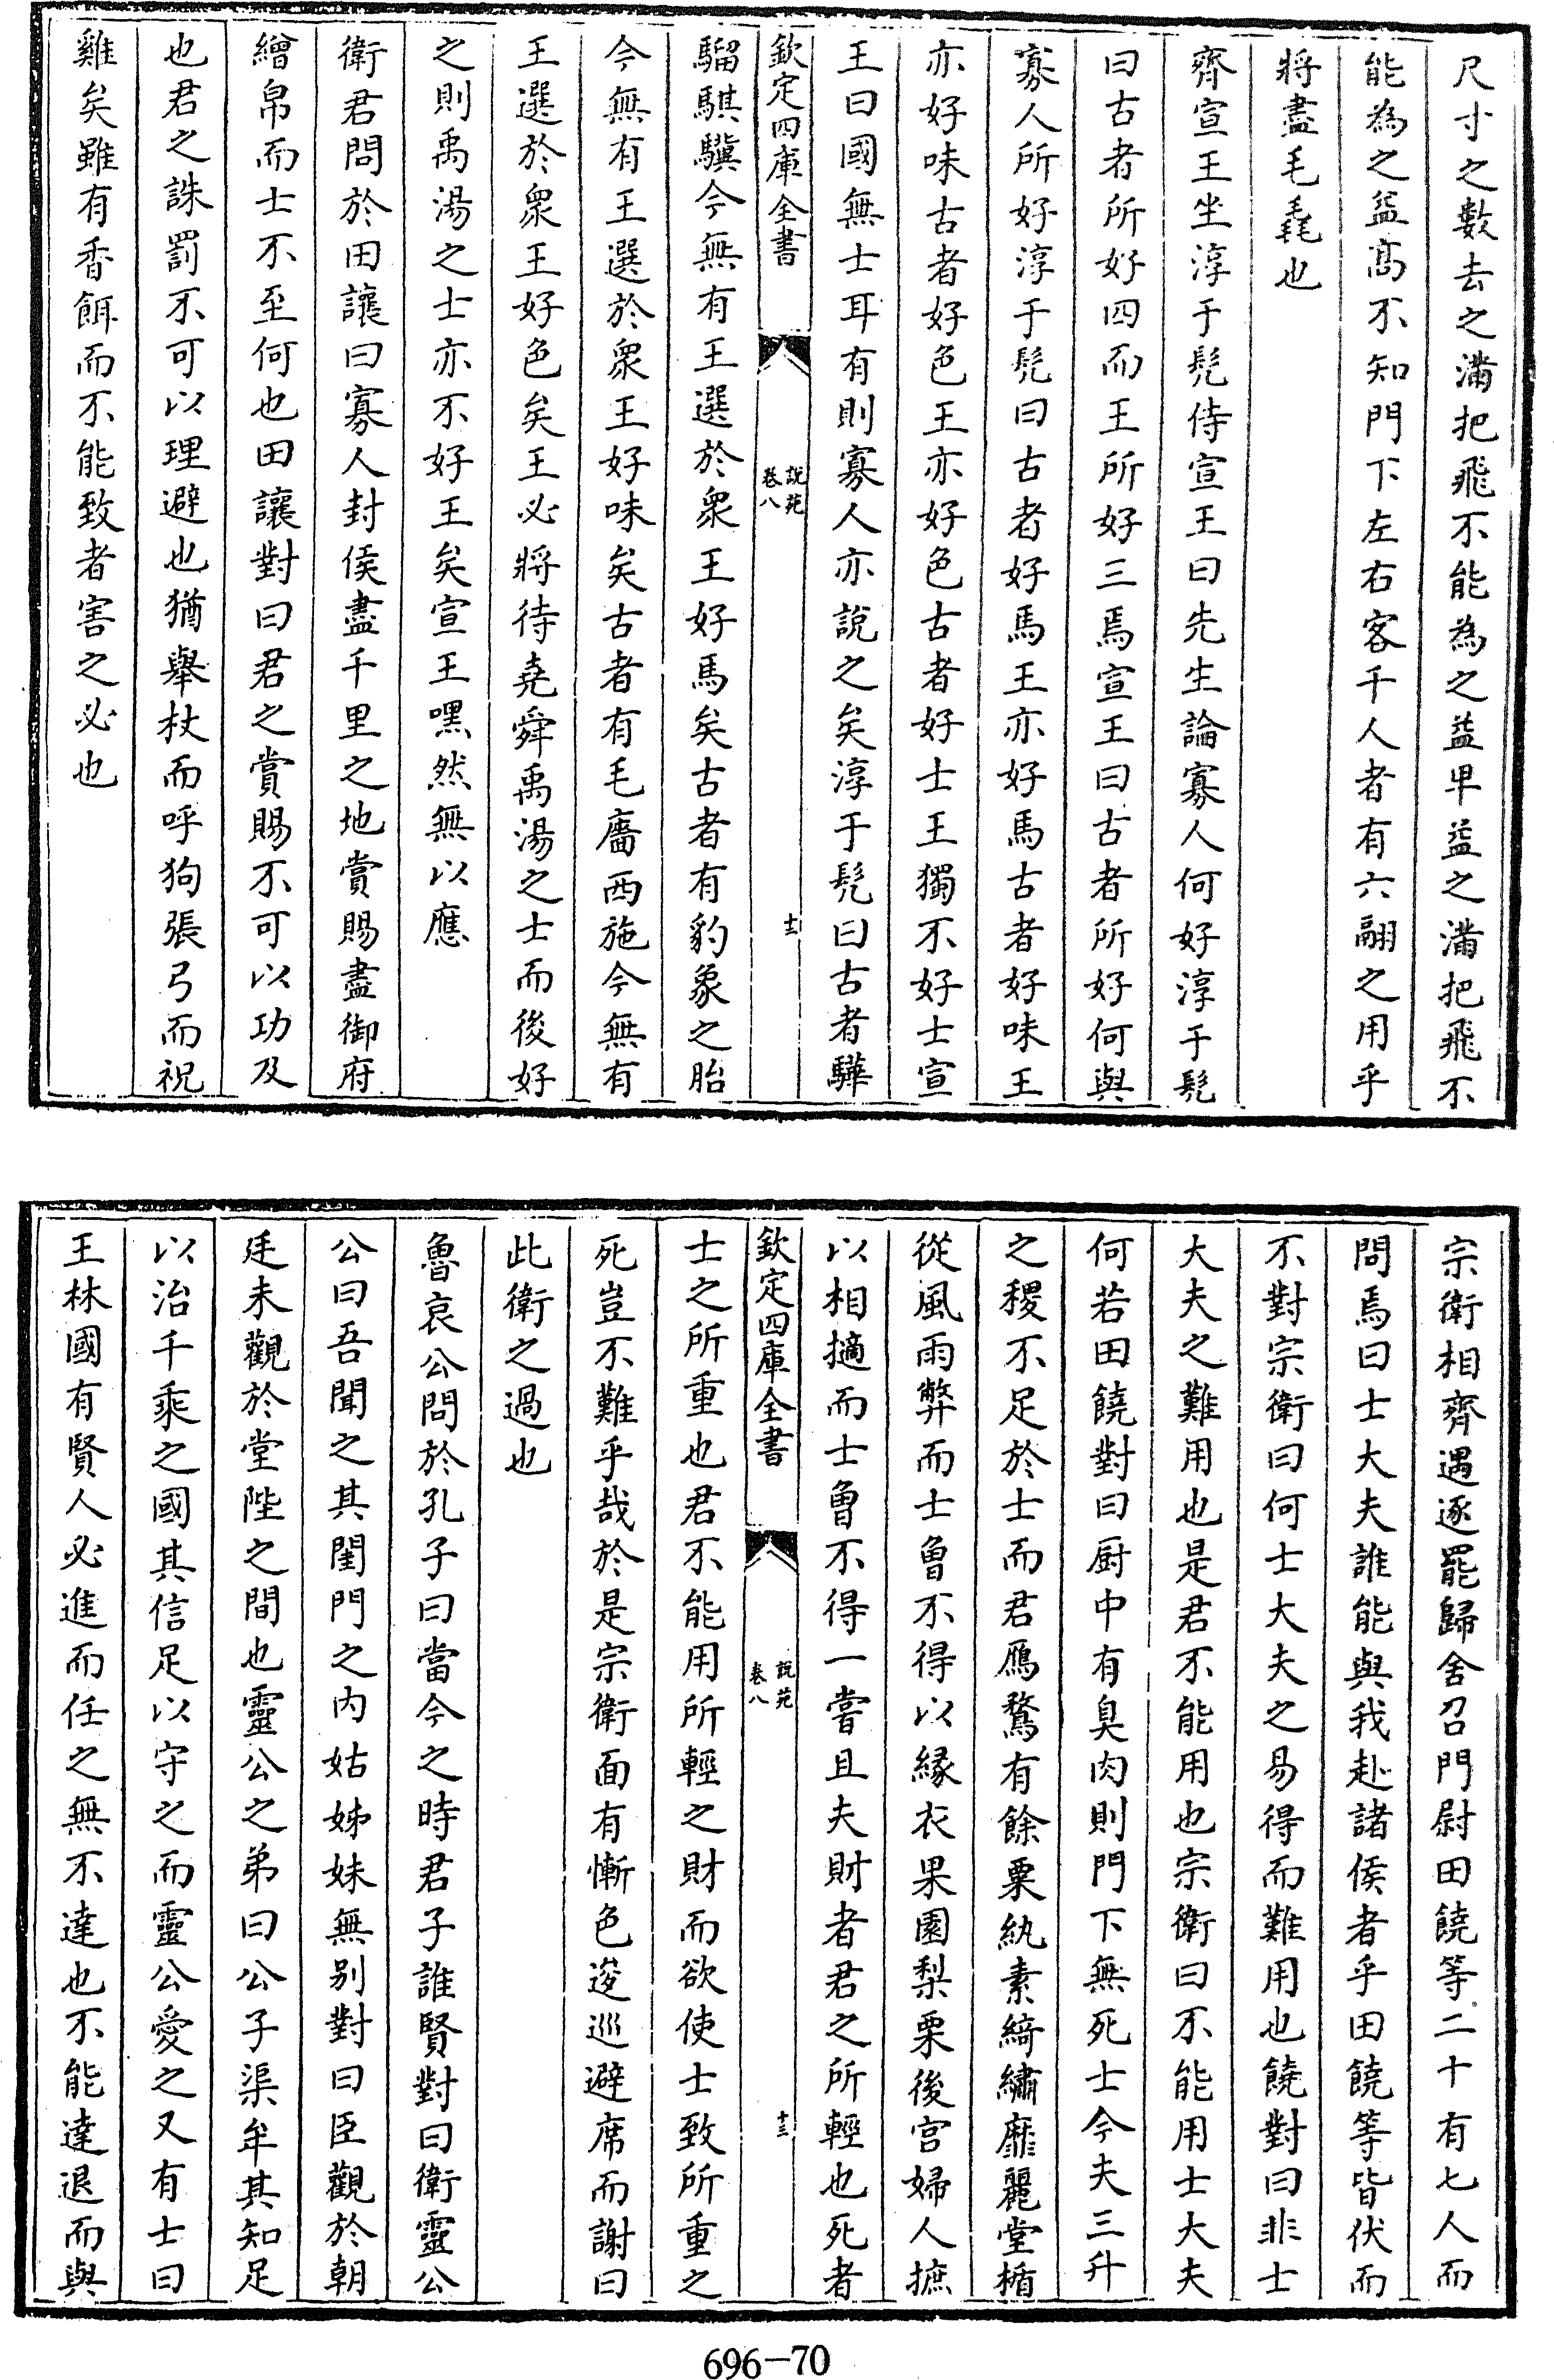 尺寸之數去之滿把飛不能為之益卑益之滿把飛不
能為之益高不知門下左右客千人者有六翮之用乎
將盡毛毳也
齊宣王坐淳于髡侍宣王曰先生論寡人何好淳于髡
曰古者所好四而王所好三焉宣王曰古者所好何與
寡人所好淳于髡曰古者好馬王亦好馬古者好味王
亦好味古者好色王亦好色古者好士王獨不好士宣
王曰國無士耳有則寡人亦說之矣淳于髡曰古者驊
欽定四庫全書
說苑
卷八
十二
騮騏驥今無有王選於衆王好馬矣古者有豹象之胎
今無有王選於衆王好味矣古者有毛廧西施今無有
王選於衆王好色矣王必將待堯舜禹湯之士而後好
之則禹湯之士亦不好王矣宣王嘿然無以應
衛君問於田讓曰寡人封侯盡千里之地賞賜盡御府
繒帛而士不至何也田讓對曰君之賞賜不可以功及
也君之誅罰不可以理避也猶舉杖而呼狗張弓而祝
雞矣雖有香餌而不能致者害之必也
宗衛相齊遇逐罷歸舍召門尉田饒等二十有七人而
問焉曰士大夫誰能與我赴諸侯者乎田饒等皆伏而
不對宗衛曰何士大夫之易得而難用也饒對曰非士
大夫之難用也是君不能用也宗衛曰不能用士大夫
何若田饒對曰厨中有臭肉則門下無死士今夫三升
之稷不足於士而君鴈鶩有餘粟紈素綺繡靡麗堂楯
從風雨弊而士曾不得以緣衣果園梨栗後宮婦人摭
以相擿而士曾不得一嘗且夫財者君之所輕也死者
欽定四庫全書
說苑
卷八
十三
士之所重也君不能用所輕之財而欲使士致所重之
死豈不難乎哉於是宗衛面有慚色逡巡避席而謝曰
此衛之過也
魯哀公問於孔子曰當今之時君子誰賢對曰衛靈公
公曰吾聞之其閨門之内姑姊妹無别對曰臣觀於朝
廷未觀於堂陛之間也靈公之弟曰公子渠牟其知足
以治千乘之國其信足以守之而靈公愛之又有士曰
王林國有賢人必進而任之無不達也不能達退而與
696-70